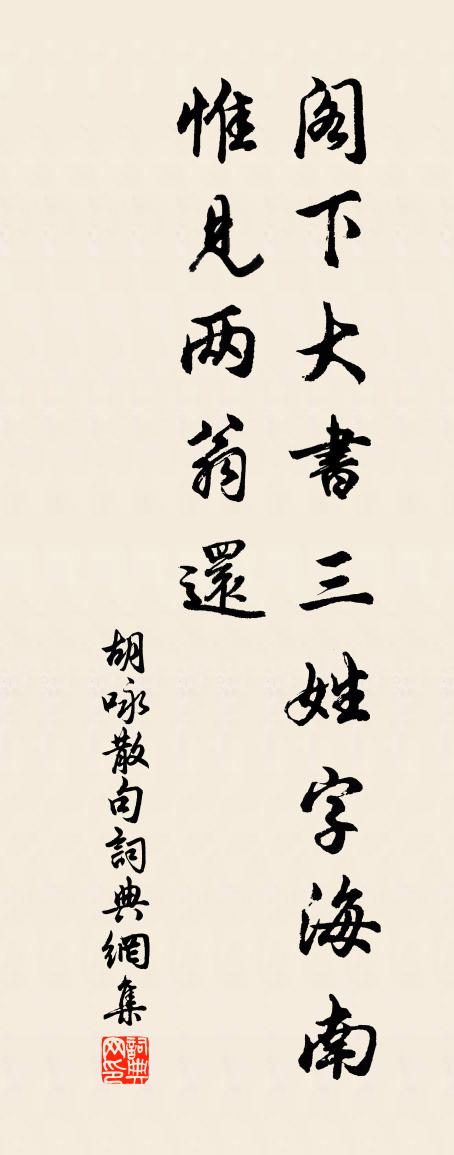 阁下大書三姓字海南
惟見两翁還
胡咏散句詞典網集
詞典网印